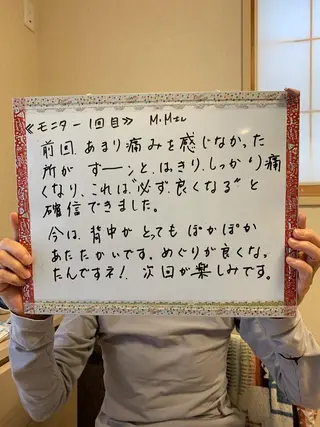 ≪モニター1回目≫ M.Mさん
前回、あまり痛みを感じなかった
所が すーーンと、はっきり、しっかり痛
くなり、これは"必ず良くなる"と
確信できました。
今は、背中が とっても ぽかぽか
あたたかいです。めぐりが良くなっ
たんですネ!、次回が楽しみです。